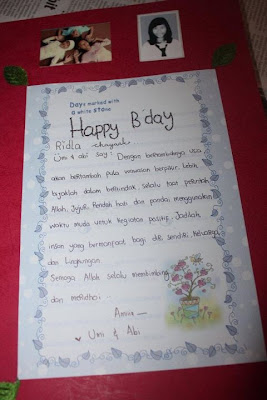 Days marked with
a white stone
Happy B'day
Ridla
Umi & abi say : Dengan bertambahnya usia
akan bertambah pula wawasan berpikir. Lebih
bijaklah dalam bertindak, selalu taat perintah
Allah, Jujur, Rendah hati dan pandai menggunakan
waktu muda untuk kegiatan positip. Jadilah
insan yang bermanfaat bagi diri sendiri, Keluarga
dan Lingkungan.
Semoga Allah selalu membimbing
dan meridhoi.
Amiin —
Umi & Abi